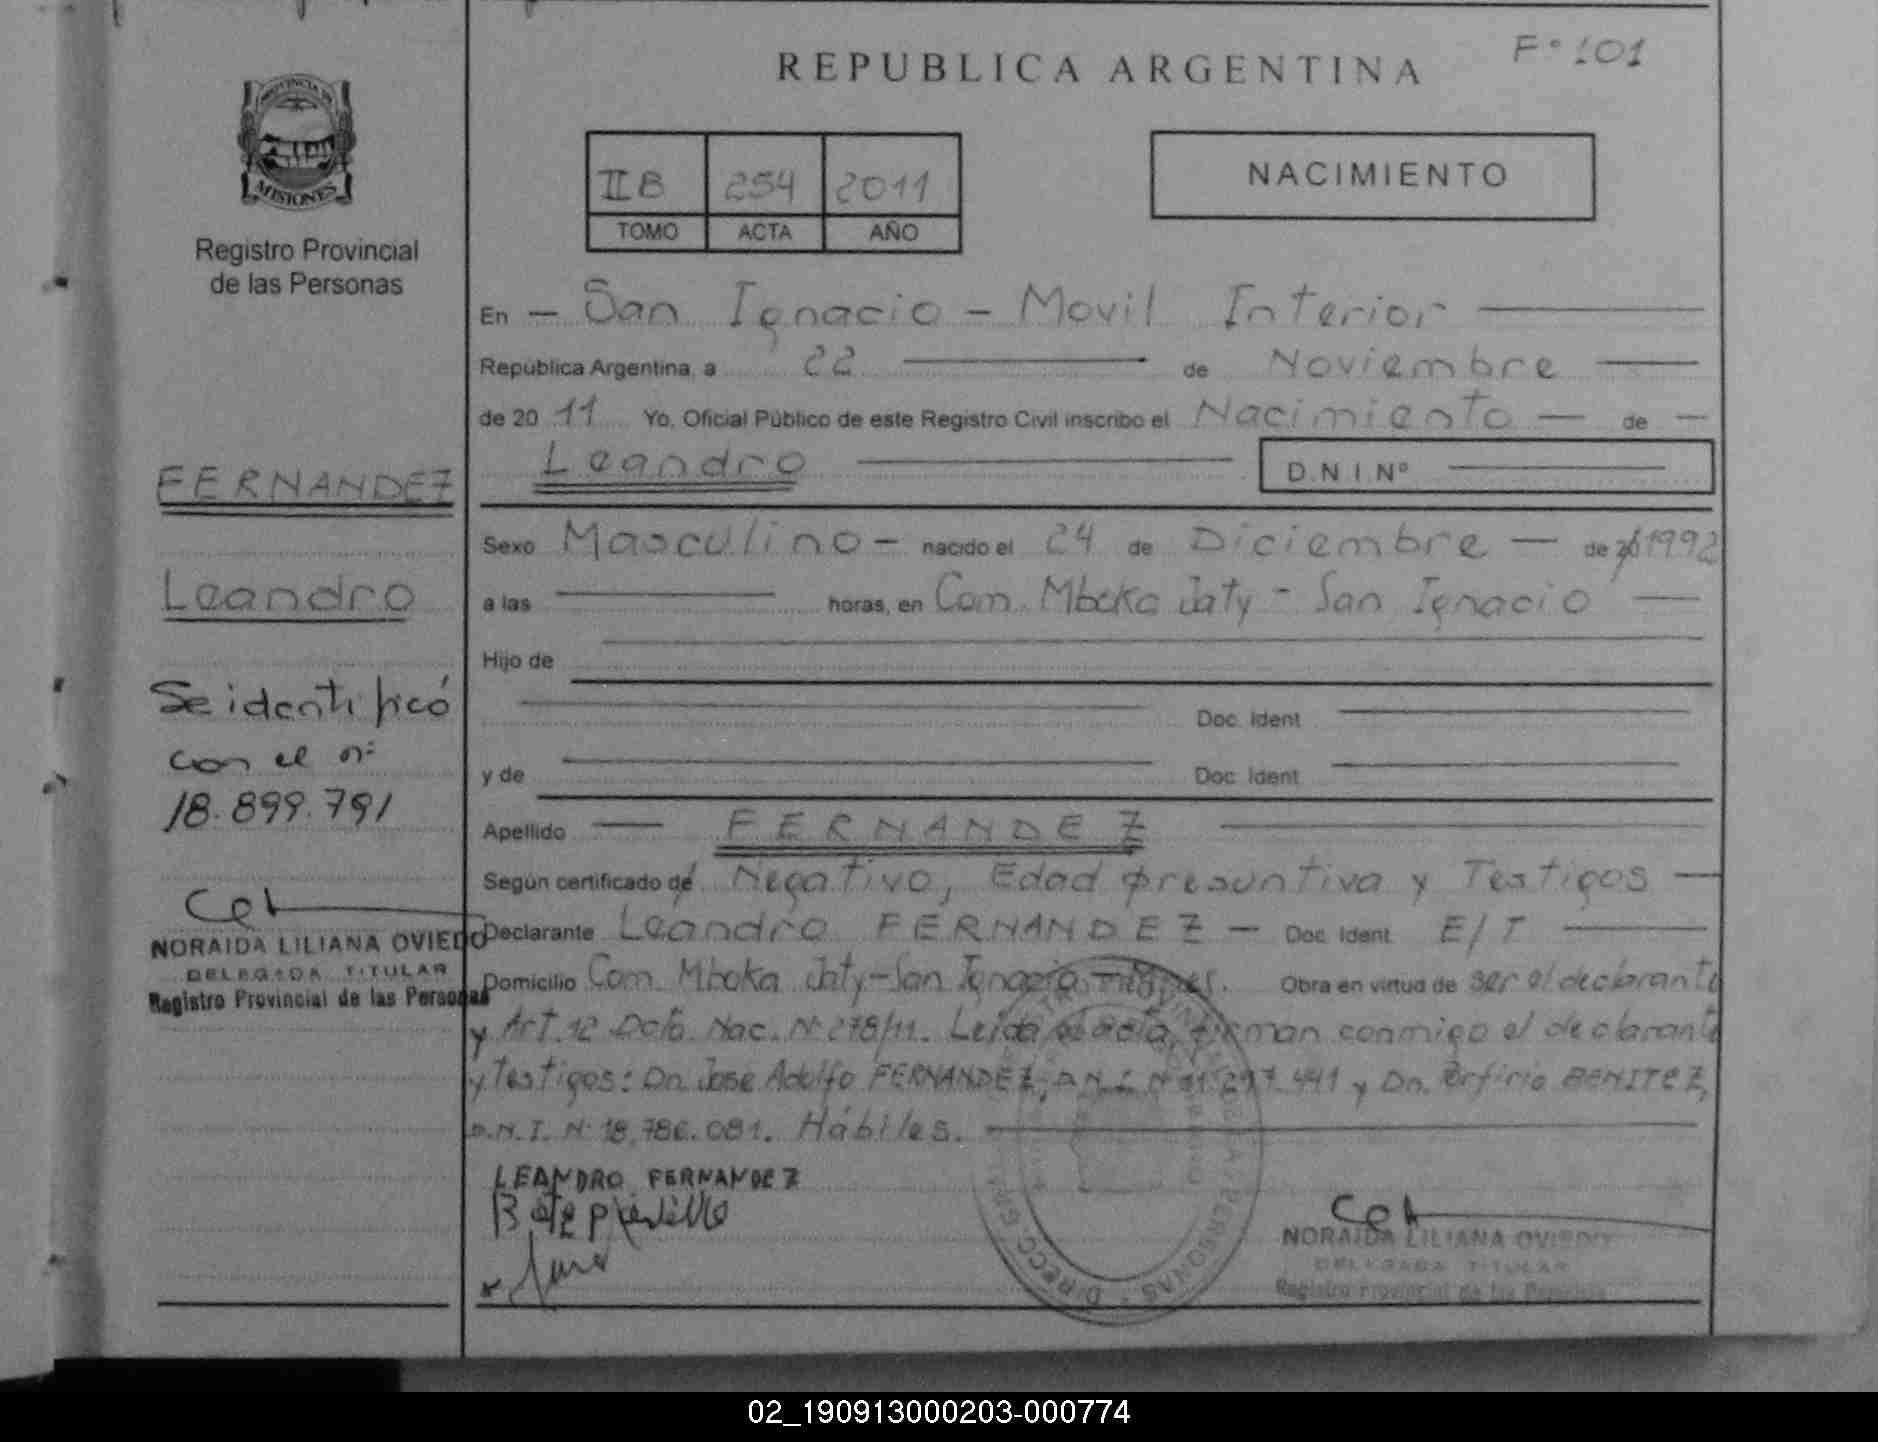 F° 101
REPUBLICA ARGENTINA
PROVINCIA DE
MISIONES
Registro Provincial
de las Personas
II B 254 2011
TOMO ACTA AÑO
NACIMIENTO
En — San Ignacio - Movil Interior
República Argentina, a 22 de Noviembre
de 20 11 Yo, Oficial Público de este Registro Civil inscribo el Nacimiento — de —
Leandro
D.N.I.Nº
Sexo Masculino - nacido el 24 de Diciembre — de 20 1992
a las horas, en Com. Mboka Jaty - San Ignacio
Hijo de
Doc. Ident.
y de Doc. Ident.
Apellido — FERNANDEZ
Según certificado de Negativo, Edad presuntiva y Testigos —
Declarante Leandro FERNANDEZ — Doc. Ident. E/T
Domicilio Com. Mboka Jaty-San Ignacio - Mnes. Obra en virtud de ser el declarante
y Art. 12 Dcto. Nac. Nº 278/11. Leida el acta, firman conmigo el declarante
y Testigos: Dn. Jose Adolfo FERNANDEZ, D.N.I. Nº 11.297.441 y Dn. Porfirio BENITEZ,
D.N.I. Nº 18.786.081. Hábiles.
LEANDRO FERNANDEZ
NORAIDA LILIANA OVIEDO
DELEGADA TITULAR
Registro Provincial de las Personas
FERNANDEZ
Leandro
Se identificó
con el nº
18.899.791
NORAIDA LILIANA OVIEDO
DELEGADA TITULAR
Registro Provincial de las Personas
02_190913000203-000774